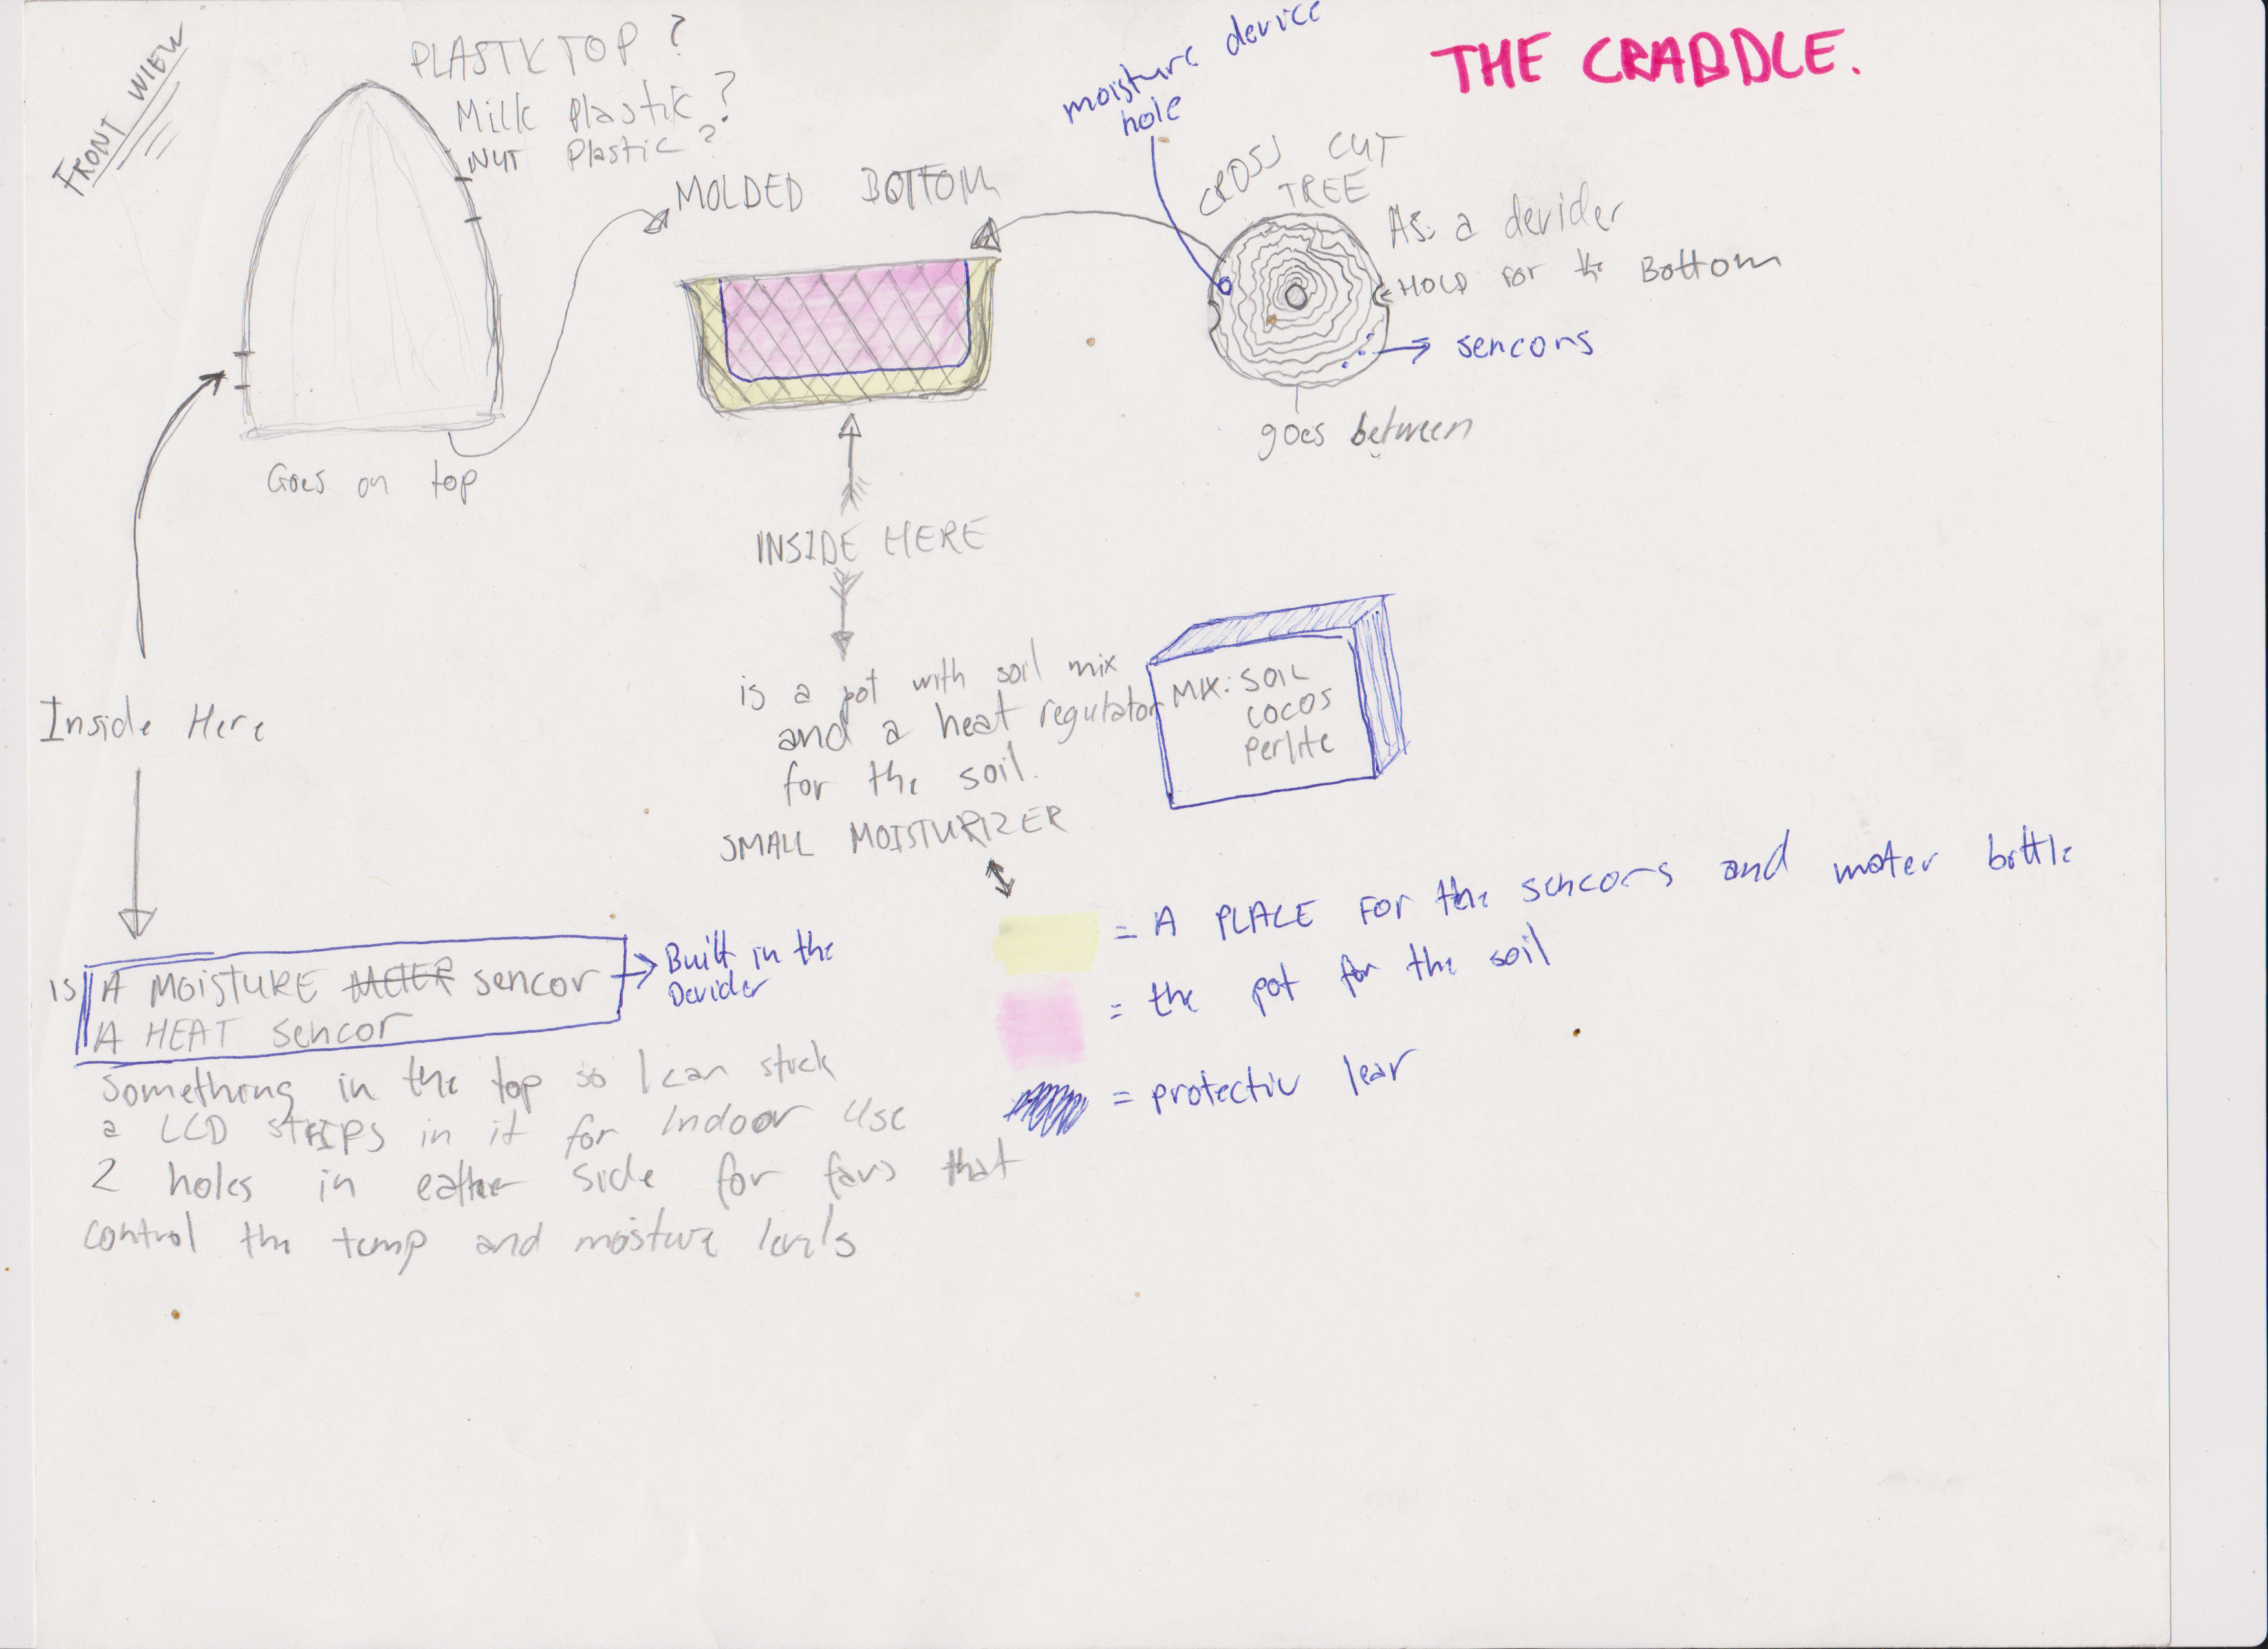 FRONT WIEW
PLASTIK TOP?
Milk Plastik?
NUT Plastic?
Goes on top
MOLDED BOTTOM
moisture device
hole
THE CRADDLE.
CROSS CUT
TREE
AS: a devider
HOLD FOR the Bottom
sencors
goes between
INSIDE HERE
is a pot with soil mix
and a heat regulator
for the soil.
SMALL MOISTURIZER
MIX: SOIL
COCOS
Perlite
Inside Here
is A MOISTURE METER sencor
A HEAT sencor
Built in the
Devider
something in the top so I can stick
a LCD STRIPS in it for Indoor Use
2 holes in eather side for fans that
control the temp and moisture levels
= A PLACE FOR the sencors and water bottle
= the pot for the soil
= protectiv lear